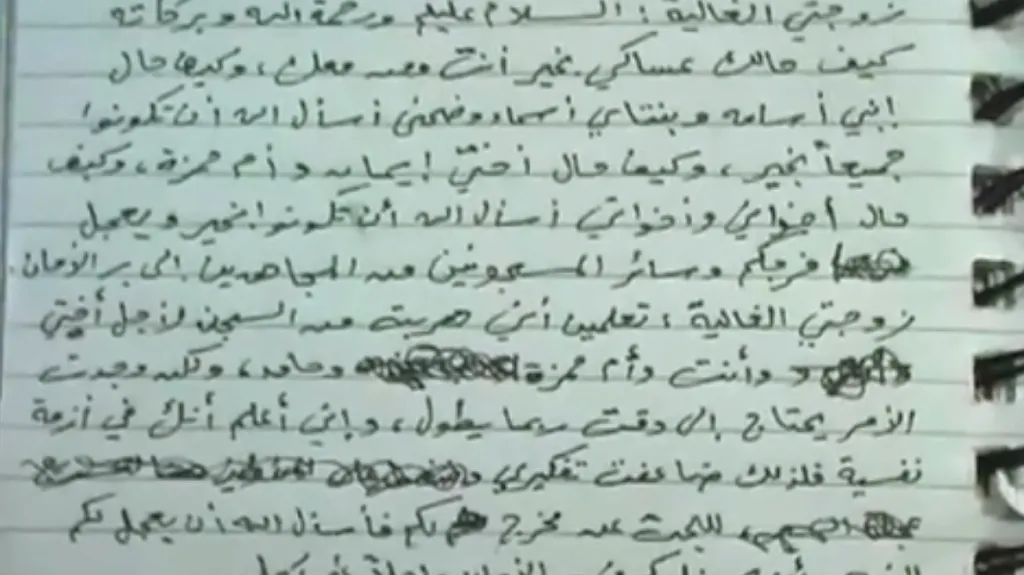 زوجتي الغالية : السلام عليكم ورحمة الله وبركاته
كيف حالك عساكي بخير أنت ومن معك ، وكيف حال
إبني أسامه وبنتاي أسماء وضحى أسأل الله أن تكونوا
جميعاً بخير ، وكيف حال أختيّ إيمان و أم حمزة ، وكيف
حال أخواي وأخواتي أسأل الله أن تكونوا بخير ويعجل
فرجكم وسائر المسجونين من المجاهدين إلى بر الأمان .
زوجتي الغالية : تعلمين أنني هربت من السجن لأجل أختي
و وأنت وأم حمزة وحامد ، ولكن وجدت
الأمر يحتاج إلى وقت ربما يطول ، وإني أعلم أنك في أزمة
نفسية فلذلك ضاعفت تفكيري و
للبحث عن مخرج لكم فأسأل الله أن يعجل لكم